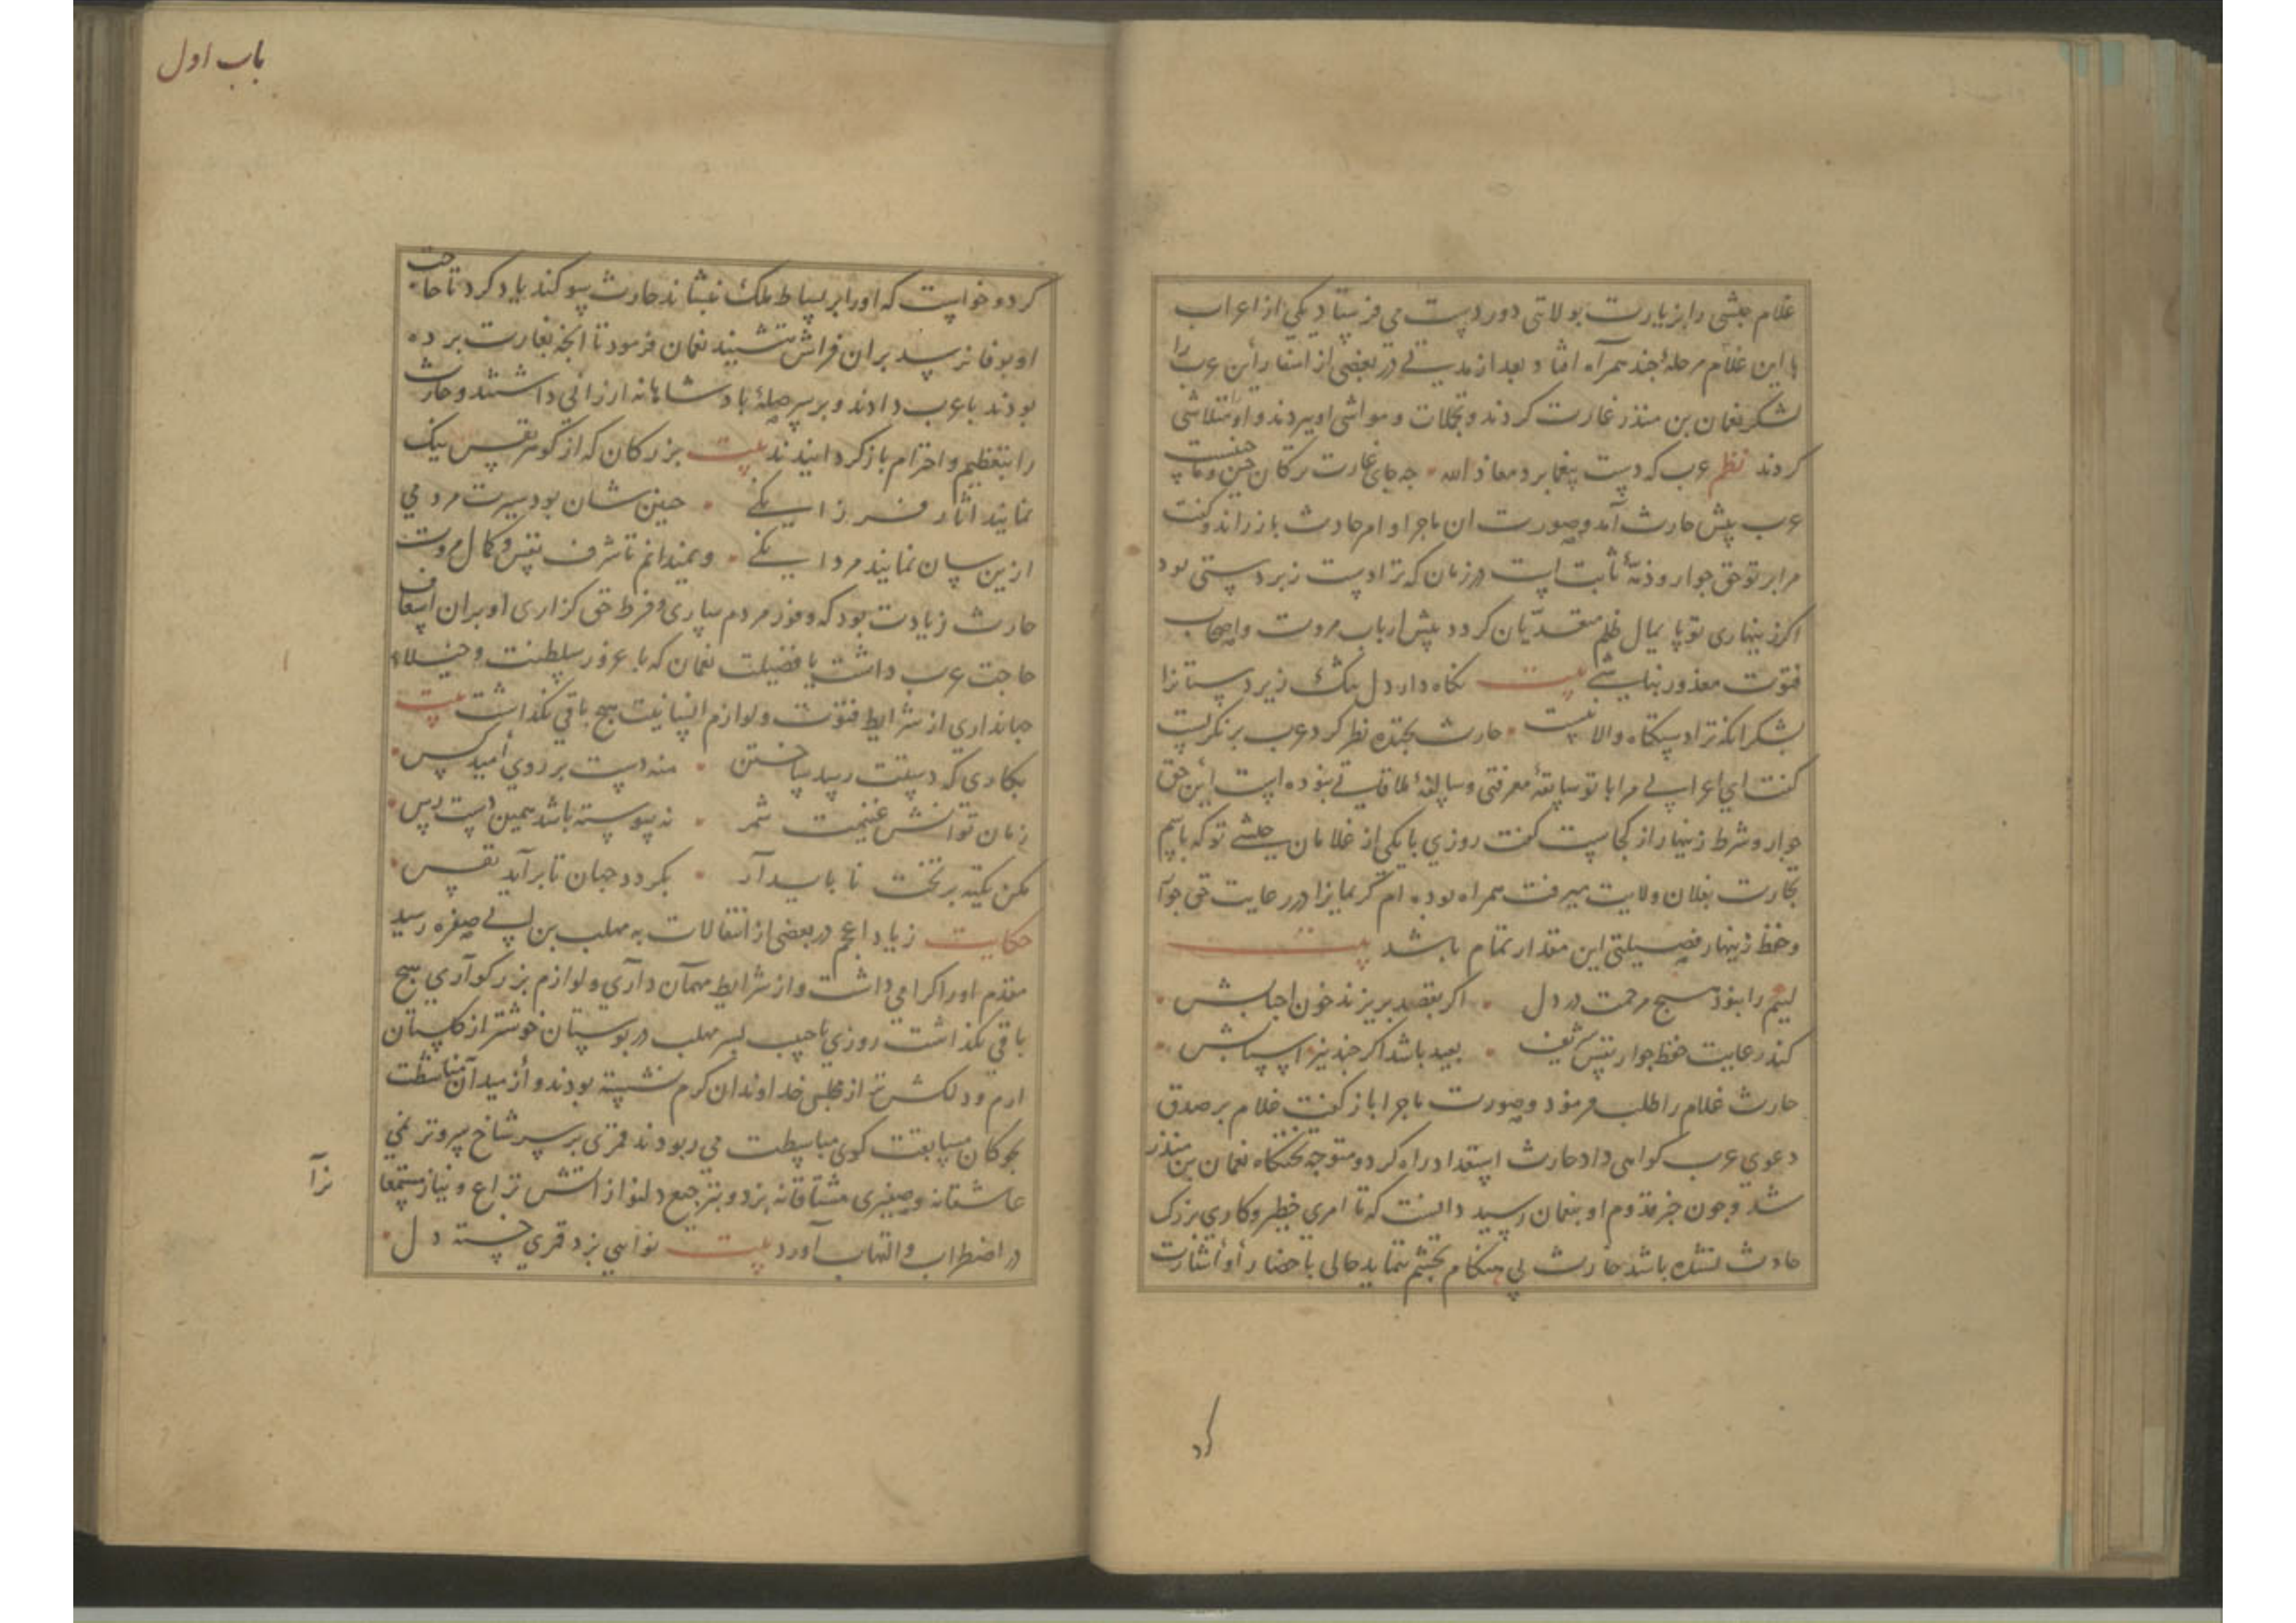 غلام حبشی را بزیارت بولاتی دور دست می فرستاد یکی از اعراب
با این غلام مرحلهٔ چند همراه افتاد و بعد از مدتی در بعضی از اسفار این عرب را
لشکر نعمان بن منذر غارت کردند و تجملات و مواشی او ببردند و او را متلاشی
کردند نظم عرب که دست یغما برد معاذ الله جه جای غارت ترکان چین
عرب پیش حارث آمد و صورت ان ماجرا و ام حادث باز راند و گفت
مرا بر تو حق جوار و ذمهٔ ثابت است در زمان که ترا دست زبردستی بود
اکر زینهاری تو پایمال ظلم متعدیان کردد پیش ارباب مروت و اصحاب
فتوت معذور نباشی بیت نکاه دار دل تنک زیردستانرا
بشکر انکه ترا دستکاه والا نیست حارث بخنده نظر کرد و عرب بنکریست
گفت ای اعرابی مرا با تو سابقهٔ معرفتی و سالفهٔ ملاقاتی نبوده است این حق
جوار و شرط زینهار از کجاست گفت روزی با یکی از غلامان حبشی تو که باسم
تجارت بفلان ولایت میرفت همراه بوده ام کر نمایزا در رعایت حق جوا
و حفظ زینهار فضیلتی این مقدار تمام باشد بیت
لیم را نبود هیچ مرحمت در دل اکر بقصد بریزند خون احبابش
کند رعایت حفظ جوار نفس شریف بعید باشد اکر چند نیز اسبابش
حارث غلام را طلب فرمود و صورت ماجرا باز گفت غلام بر صدق
دعوی عرب کواهی داد حارث استعداد راه کرد و متوجه تختکاه نعمان بن منذر
شد و چون خبر قدوم او بنعمان رسید دانست که تا امری خطیر و کاری بزرک
حادث نشده باشد حارث بی هنکام تجشم ننماید حالی باحضار او اشارت
کرد
باب اول
کرد و خواست که او را بر بساط ملک بنشاند حارث سوکند یاد کرد تا حاجت
او بوفا نرسد بران فراش ننشیند نعمان فرمود تا انچه بغارت برده
بودند با عرب دادند و بر سر صلهٔ بادشاهانه ارزانی داشتند و حارث
را بتعظیم و احترام باز کردانیدند بیت بزرکان که از کوهر نفس نیک
نمایند اثار فرزانکی چنین شان بود سیرت مردمی
ازین سان نمایند مردانکی و نمیدانم تا شرف نفس و کمال مروت
حارث زیادت بود که وفور مردم ساری و فرط حق کزاری او بران اسعاف
حاجت عرب داشت یا فضیلت نعمان که با غرور سلطنت و خیلاء
جهانداری از شرایط فتوت و لوازم انسانیت هیچ باقی نکذاشت بیت
بکاری که دستت رسد ساختن منه دست بر روی امید کس
زمان توانش غنیمت شمر نه پیوسته باشد همین دست رس
مکن تکیه بر تخت نا پایدار بکردد جهان تا برآید نفس
حکایت زیاد اعجم در بعضی از انتقالات به مهلب بن ابی صفره رسید
مقدم او را کرامی داشت و از شرایط مهمان داری و لوازم بزرکواری هیچ
باقی نکذاشت روزی با حبیب بسر مهلب در بوستان خوشتر از کلستان
ارم و دلکش تر از مجلس خداوندان کرم نشسته بودند و از میدان مناشطت
بچوکان مسابقت کوی مباسطت می ربودند قمری بر سر شاخ سروتر نمی
عاشقانه و صفیری مشتاقانه بزد و بترجیع دلنواز اتش نزاع و نیاز مستمعا
نرا
در اضطراب و التهاب آورد بیت نواسی بزد قمری خسته دل